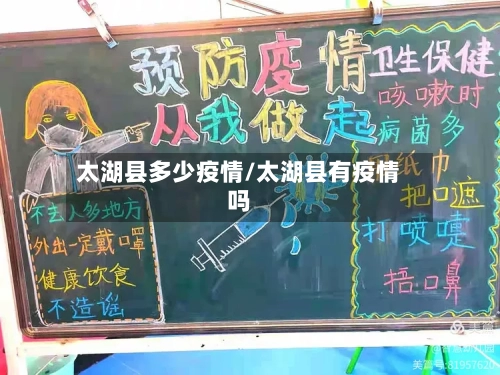 预防疫情
从我做起
太湖县多少疫情/太湖县有疫情
吗
不去人多地方
外出一定戴口罩
健康饮食
不造谣
卫生保健
咳嗽时
病菌多
纸巾
把口遮
打喷嚏
捂口鼻
美篇号:81957620